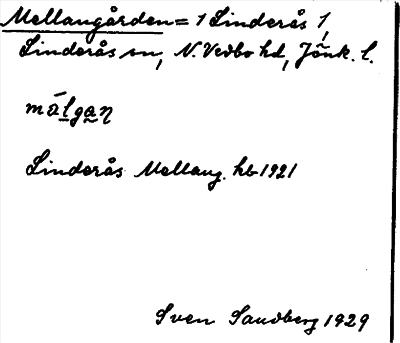 Mellangården = 1 Linderås 1,
Linderås sn, N. Vedbo hd, Jönk. l.
málgaŋ
Linderås Mellang. hb 1921
Sven Sandberg 1929